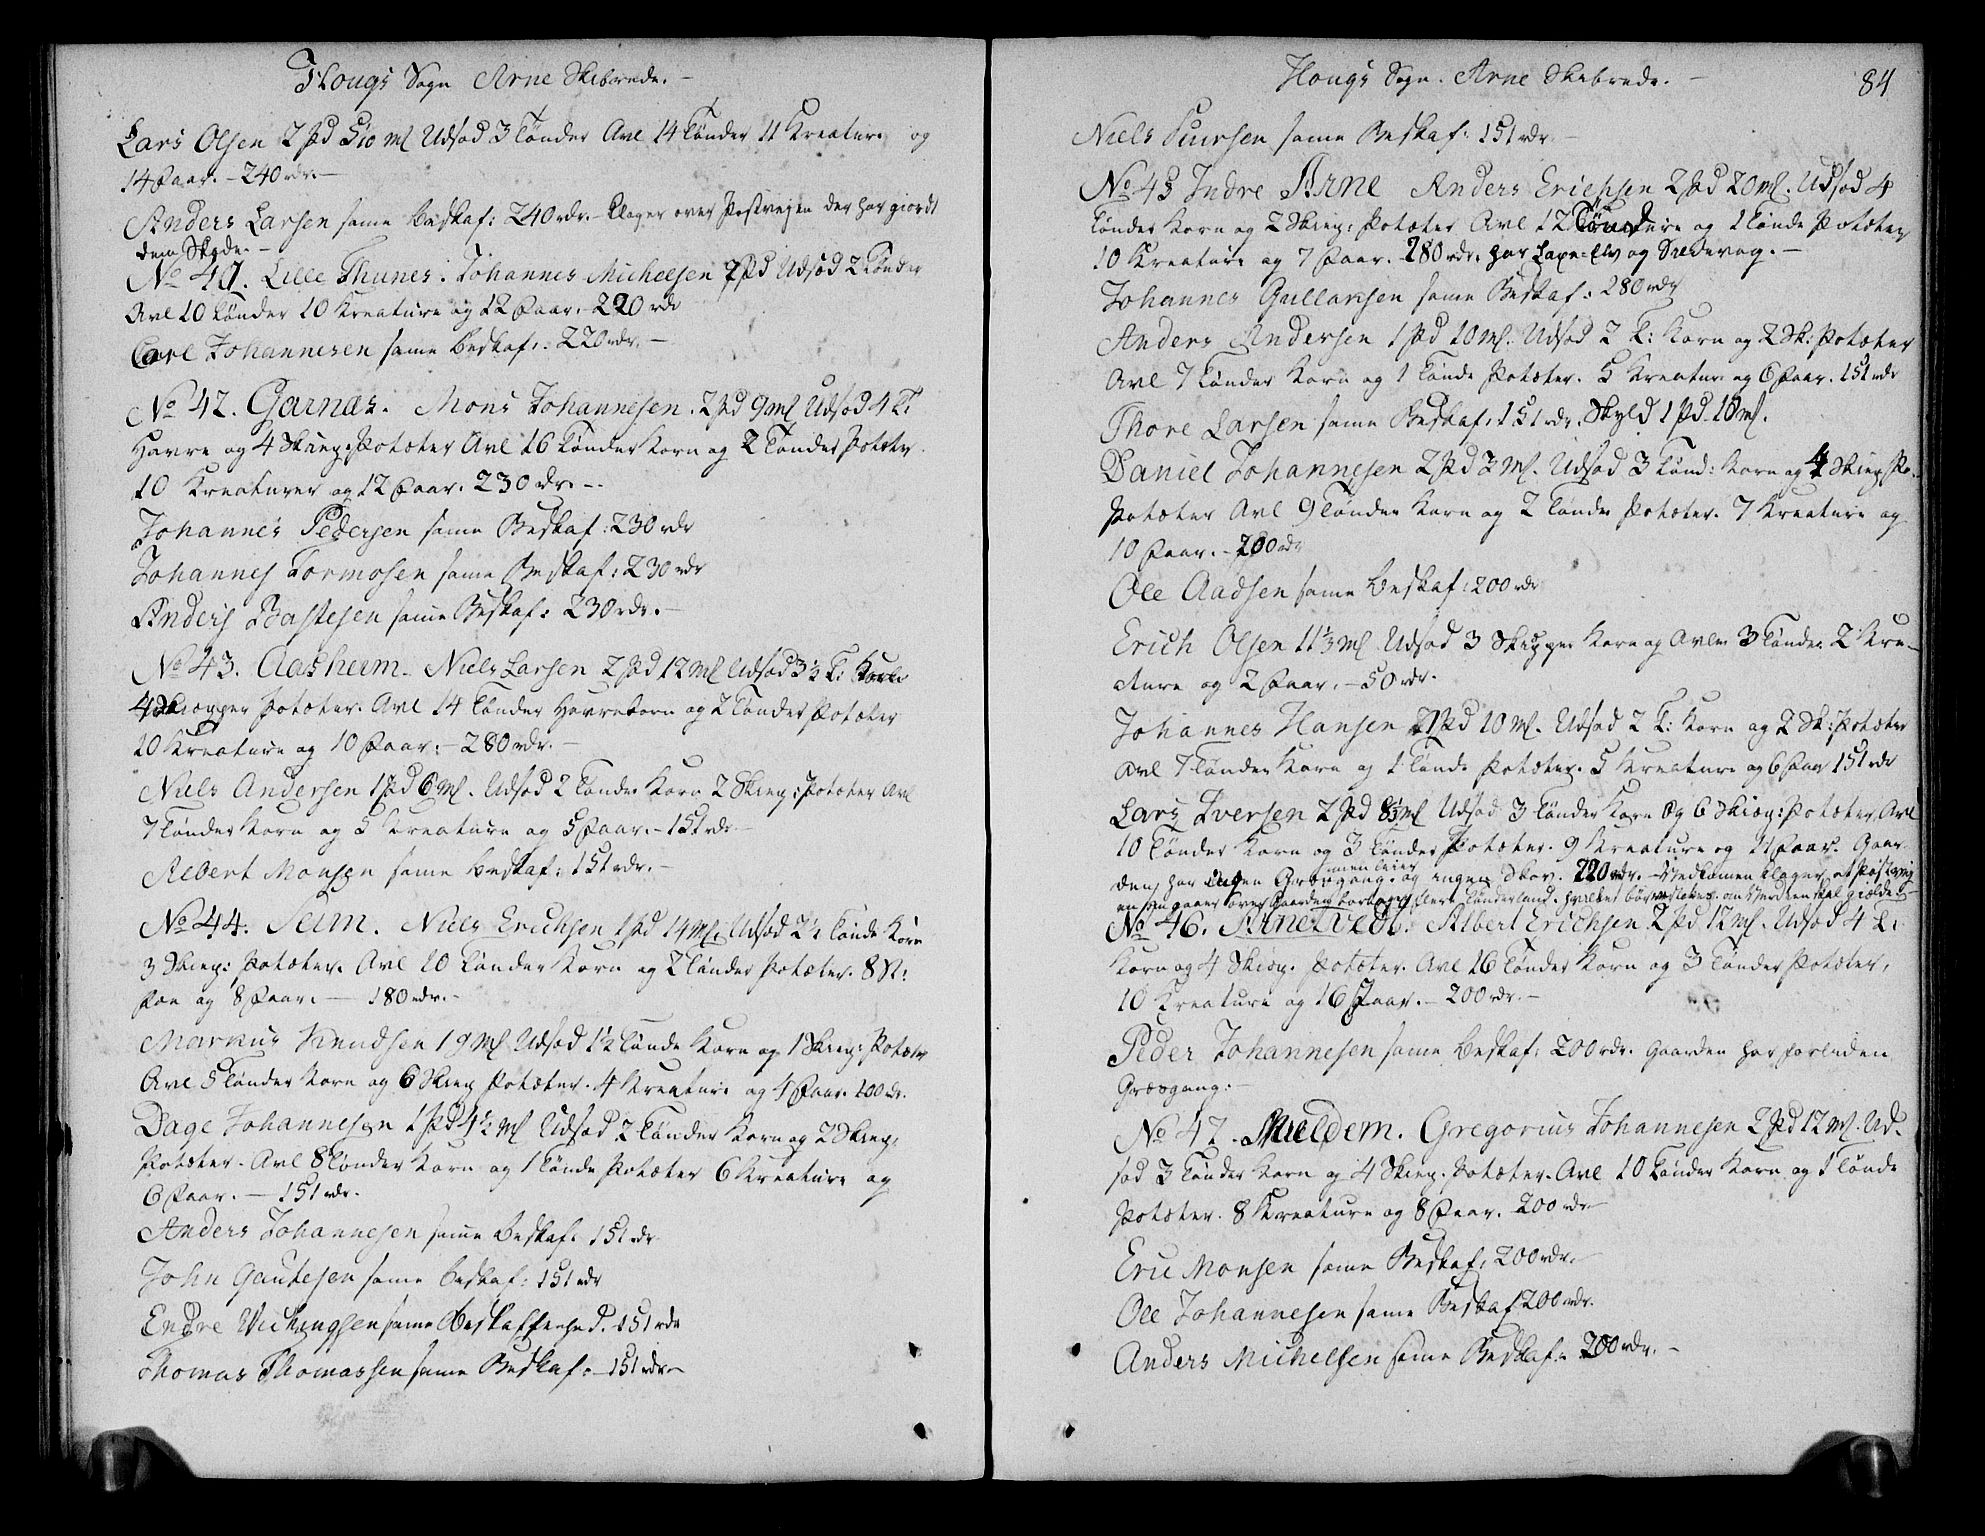 Hougs Sogn Arne Skibrede. –
Lars Olsen 2 pd 10 ml Udsæd 3 Tønder Avl 14 Tønder 11 Kreature og
14 Faar. – 240 rdr. –
Anders Larsen same beskaf: 240 rdr. – klager over Postvejen der har giordt
dem Skade. –
No 41. Lille Thunes. Johannes Michelsen 2 pd Udsæd 2 Tønder
Avl 10 Tønder 10 Kreature og 12 Faar. – 220 rdr
Carl Johannesen same beskaf: 220 rdr. –
No 42. Garnæs. Mons Johannesen. 2 pd 9 ml Udsæd 4 T:
Havre og 4 Skiep: Potæter Avl 16 Tønder Korn og 2 Tønder Potæter
10 Kreaturer og 12 Faar. 230 rdr. –
Johannes Pedersen same Beskaf: 230 rdr
Johannes Tormosen same Beskaf: 230 rdr
Anders Bastesen same Beskaf: 230 rdr. –
No 43. Aasheim. Niels Larsen 2 pd 12 ml Udsæd 3½ T:
4 Skiepper Potæter. Avl 14 Tønder Havrekorn og 2 Tønder Potæter
10 Kreature og 10 Faar: – 280 rdr. –
Niels Andersen 1 pd 6 ml. Udsæd 2 Tønder Korn 2 Skiep: Potæter Avl
7 Tønder Korn og 5 Kreature og 5 Faar. – 151 rdr –
Albert Monsen same beskaf: 151 rdr. –
No 44. Seim. Niels Erichsen 1 pd 14 ml: Udsæd 2½ Tønde Korn
3 Skiep: Potæter. Avl 10 Tønder Korn og 2 Tønder Potæter. 8 St:
Fæe og 8 Faar. – 180 rdr. –
Markus Knudsen 19 ml Udsæd 1½ Tønde Korn og 1 Skiep: Potæter
Avl 5 Tønder Korn og 6 Skiep Potæter. 4 Kreature og 4 Faar. 100 dr.
Dage Johannesen 1 pd 4½ ml Udsæd 2 Tønder Korn og 2 Skiep:
Potæter. Avl 8 Tønder Korn og 1 Tønde Potæter 6 Kreature og
6 Faar. – 151 rdr.
Anders Johannesen same beskaf: 151 rdr
John Gautesen same beskaf: 151 rdr
Endre same Beskaffenhed. 151 rdr
Thomas Thomassen same Beskaf: – 151 rdr –
Hougs Sogn. Arne Skibrede. –
84
Niels same Beskaf: 151 rdr –
No 45 Indre Arne Anders Erichsen 2 pd 20 ml. Udsæd 4
Tønder Korn og 2 Skiep: Potæter Avl 12 og 1 Tønde Potæter
10 Kreature og 7 Faar. 280 rdr. har Laxe-Elv og Sildevaag. –
Johannes Gullaksen same Beskaf: 280 rdr
Anders Andersen 1 pd 10 ml. Udsæd 2 T: Korn og 2 Sk: Potæter
Avl 7 Tønder Korn og 1 Tønde Potæter. 5 Kreature og 6 Faar. 151 rdr
Thore Larsen same Beskaf: 151 rdr. Skyld 1 pd 10 ml.
Daniel Johannesen 2 pd 3 ml. Udsæd 3 Tønd: Korn og 4 Skiep Po-
Potæter Avl 9 Tønder Korn og 2 Tønder Potæter. 7 Kreature og
10 Faar. – 200 rdr
Ole Aadsen same beskaf: 200 rdr
Erich Olsen 11⅓ ml Udsæd 3 Skiepper Korn og Avler 3 Tønder 2 Kre-
ature og 2 Faar. – 50 rdr.
Johannes Hansen 1 pd 10 ml. Udsæd 2 T: Korn og 2 Sk: Potæter
Avl 7 Tønder Korn og 1 Tønde Potæter. 5 Kreature og 6 Faar 151 rdr
Lars Iversen 2 pd 8⅓ ml Udsæd 3 Tønder Korn og 6 Skiep: Potæter Avl
10 Tønder Korn og 3 Tønder Potæter. 9 Kreature og 11 Faar. Gaar
den har ingen Græsgang men leier og ingen Skov. 220 rdr. – klager at Postvej
en som gaaer over Gaarden
No 46. Arnetvedt. Albert Erichsen 2 pd 12 ml. Udsæd 4 T:
Korn og 4 Skiep. Potæter. Avl 16 Tønder Korn og 3 Tønder Potæter,
10 Kreature og 16 Faar. – 200 rdr. –
Peder Johannesen same beskaf: 200 rdr. Gaarden har for liden
Græsgang. –
No 47. Mieldem. Gregorius Johannesen 2 pd 12 ml. Ud-
sæd 3 Tønder Korn og 4 Skiep. Potæter. Avl 10 Tønder Korn og 1 Tønde
Potæter. 8 Kreature og 8 Faar. 200 rdr –
Eric Monsen same Beskaf: 200 rdr.
Ole Johannesen same Beskaf 200 rdr.
Anders Michelsen same Beskaf: 200 rdr. –